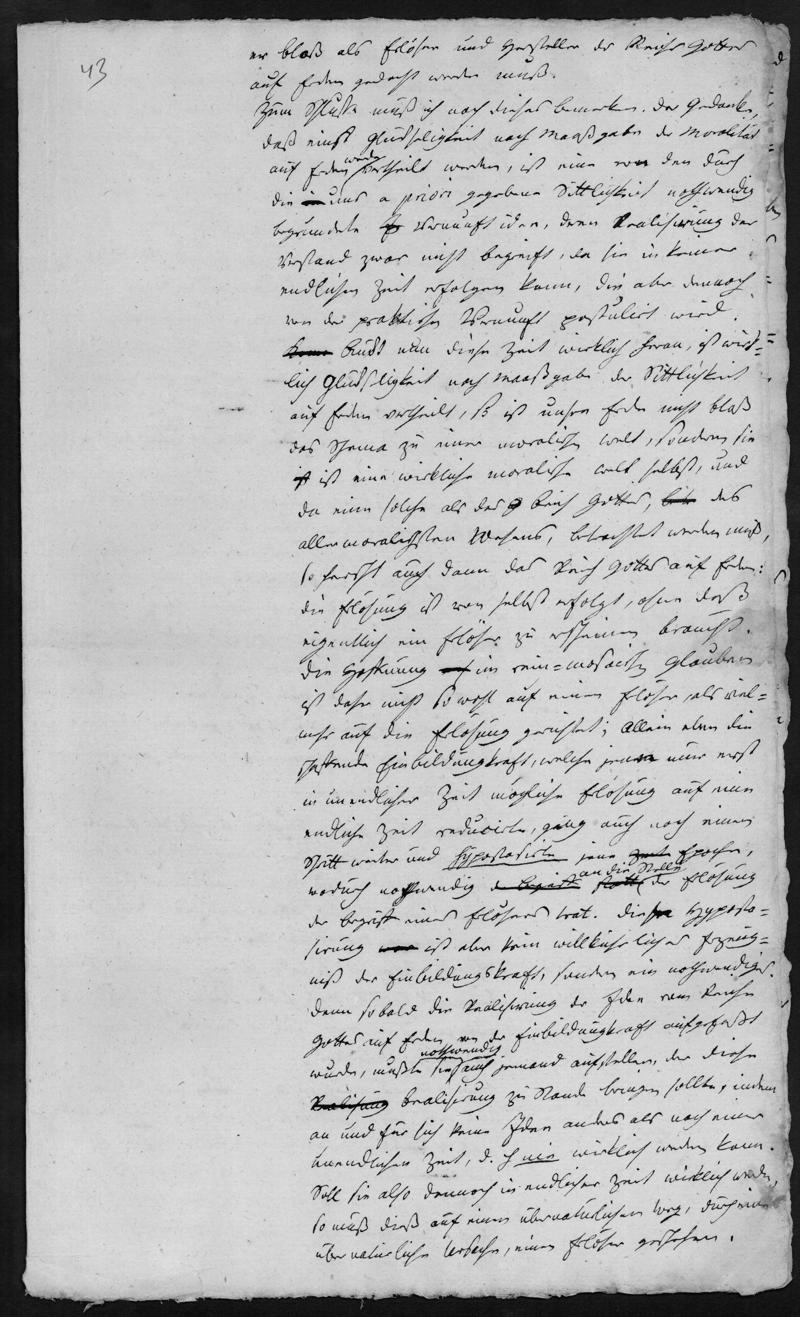 43
er bloß als Erlöser und Hersteller des Reichs Gottes
auf Erden gedacht werden muß.
Zum Schluße muß ich noch dieses bemerken. Der Gedanke,
daß einst Glückseligkeit nach Maaßgabe der Moralität
auf Erden werde vertheilt werden, ist eine von den durch
die in uns a priori gegebene Sittlichkeit nothwendig
begründete Vernunftideen, deren Realisirung der
Verstand zwar nicht begreift, da sie in keiner
endlichen Zeit erfolgen kann, die aber dennoch
von der praktischen Vernunft postulirt wird.
Rückt nun diese Zeit wirklich heran, ist wirk=
lich Glückseligkeit nach Maaßgabe der Sittlichkeit
auf Erden vertheilt, so ist unsere Erde nicht bloß
das Schema zu einer moralischen Welt, sondern sie
ist eine wirkliche moralische Welt selbst, und
da eine solche als das Reich Gottes, des
allermoralischsten Wesens, betrachtet werden muß,
so herscht auch dann das Reich Gottes auf Erden:
die Erlösung ist von selbst erfolgt, ohne daß
eigentlich ein Erlöser zu erscheinen braucht.
Die Hoffnung im rein=mosaischen Glauben
ist daher nicht so wohl auf einen Erlöser, als viel=
mehr auf die Erlösung gerichtet; allein eben die
schaffende Einbildungskraft, welche jene nur erst
in unendlicher Zeit mögliche Erlösung auf eine
endliche Zeit reducirte, ging auch noch einen
Schritt weiter und hypostasirte jene Epoche,
wodurch nothwendig an die Stelle der Erlösung
der Begriff eines Erlösers trat. Diese Hyposta=
sirung ist aber kein willkührliches Erzeug=
niß der Einbildungskraft, sondern ein nothwendiges.
Denn sobald die Realisirung der Idee vom Reiche
Gottes auf Erden von der Einbildungskraft aufgefaßt
wurde, mußte sie nothwendig auch jemand aufstellen, der diese
Realisirung zu Stande bringen sollte, indem
an und für sich keine Idee anders als nach einer
unendlichen Zeit, d. h. nie wirklich werden kann.
Soll sie also dennoch in endlicher Zeit wirklich werden,
so muß dieß auf einem übernatürlichen Weg, durch eine
übernatürliche Ursache, einen Erlöser geschehen.